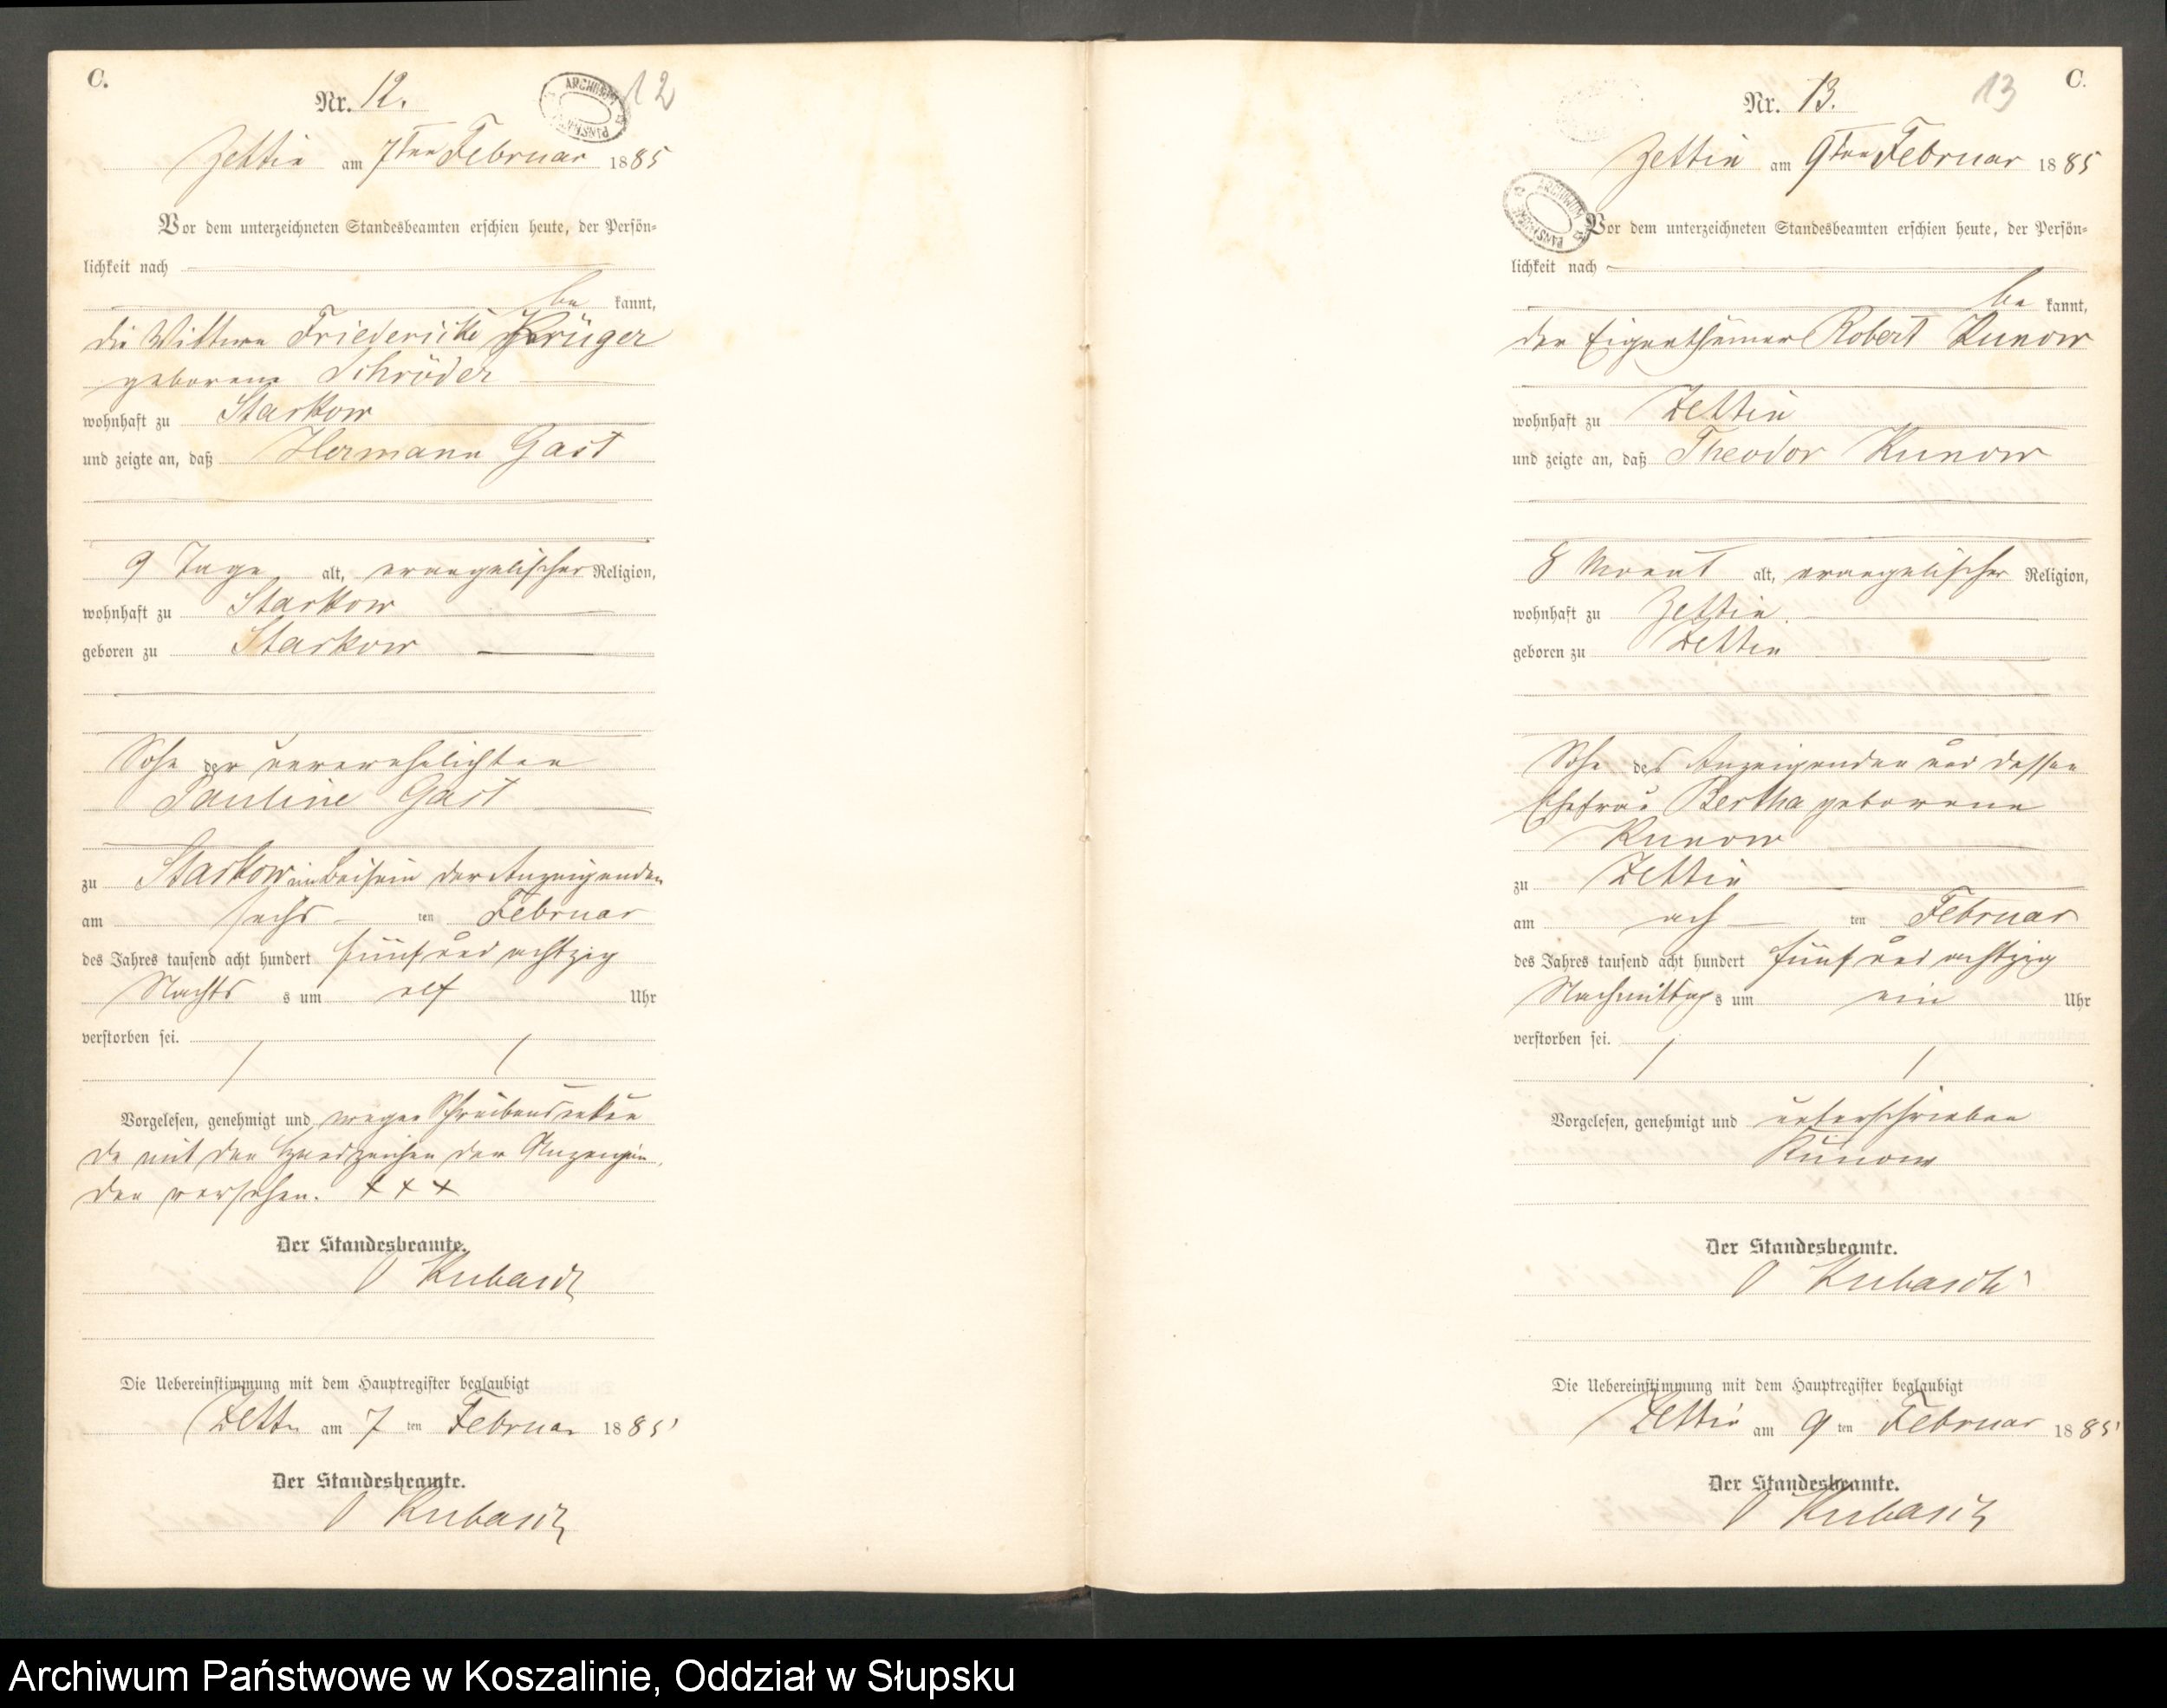 C.
Nr. 12.
12
ARCHIWUM PAŃSTWOWE
Zettin am 7ten Februar 1885
Vor dem unterzeichneten Standesbeamten erschien heute, der Persön-
lichkeit nach
be kannt,
die Wittwe Friedericke Krüger
geborene Schröder
wohnhaft zu Starkow
und zeigte an, daß Hermann Gast
9 Tage alt, evangelischer Religion,
wohnhaft zu Starkow
geboren zu Starkow
Sohn der unverehelichten
Pauline Gast
zu Starkow im Beisein der Anzeigenden
am sechs ten Februar
des Jahres tausend acht hundert fünf und achtzig
Nachts s um elf Uhr
verstorben sei.
Vorgelesen, genehmigt und wegen Schreibensunkun
de mit den Handzeichen der Anzeigen
den versehen. + + +
Der Standesbeamte.
Kubasch
Die Uebereinstimmung mit dem Hauptregister beglaubigt
Zettin am 7 ten Februar 1885
Der Standesbeamte.
Kubasch
C.
Nr. 13.
13
ARCHIWUM PAŃSTWOWE
Zettin am 9ten Februar 1885
Vor dem unterzeichneten Standesbeamten erschien heute, der Persön-
lichkeit nach
be kannt,
der Eigenthümer Robert Kunow
wohnhaft zu Zettin
und zeigte an, daß Theodor Kunow
8 Monat alt, evangelischer Religion,
wohnhaft zu Zettin.
geboren zu Zettin
Sohn des Anzeigenden und dessen
Ehefrau Bertha geborene
Kunow
zu Zettin
am ach ten Februar
des Jahres tausend acht hundert fünf und achtzig
Nachmittag s um ein Uhr
verstorben sei.
Vorgelesen, genehmigt und unterschrieben
Kunow
Der Standesbeamte.
Kubasch
Die Uebereinstimmung mit dem Hauptregister beglaubigt
Zettin am 9 ten Februar 1885
Der Standesbeamte.
Kubasch
Archiwum Państwowe w Koszalinie, Oddział w Słupsku